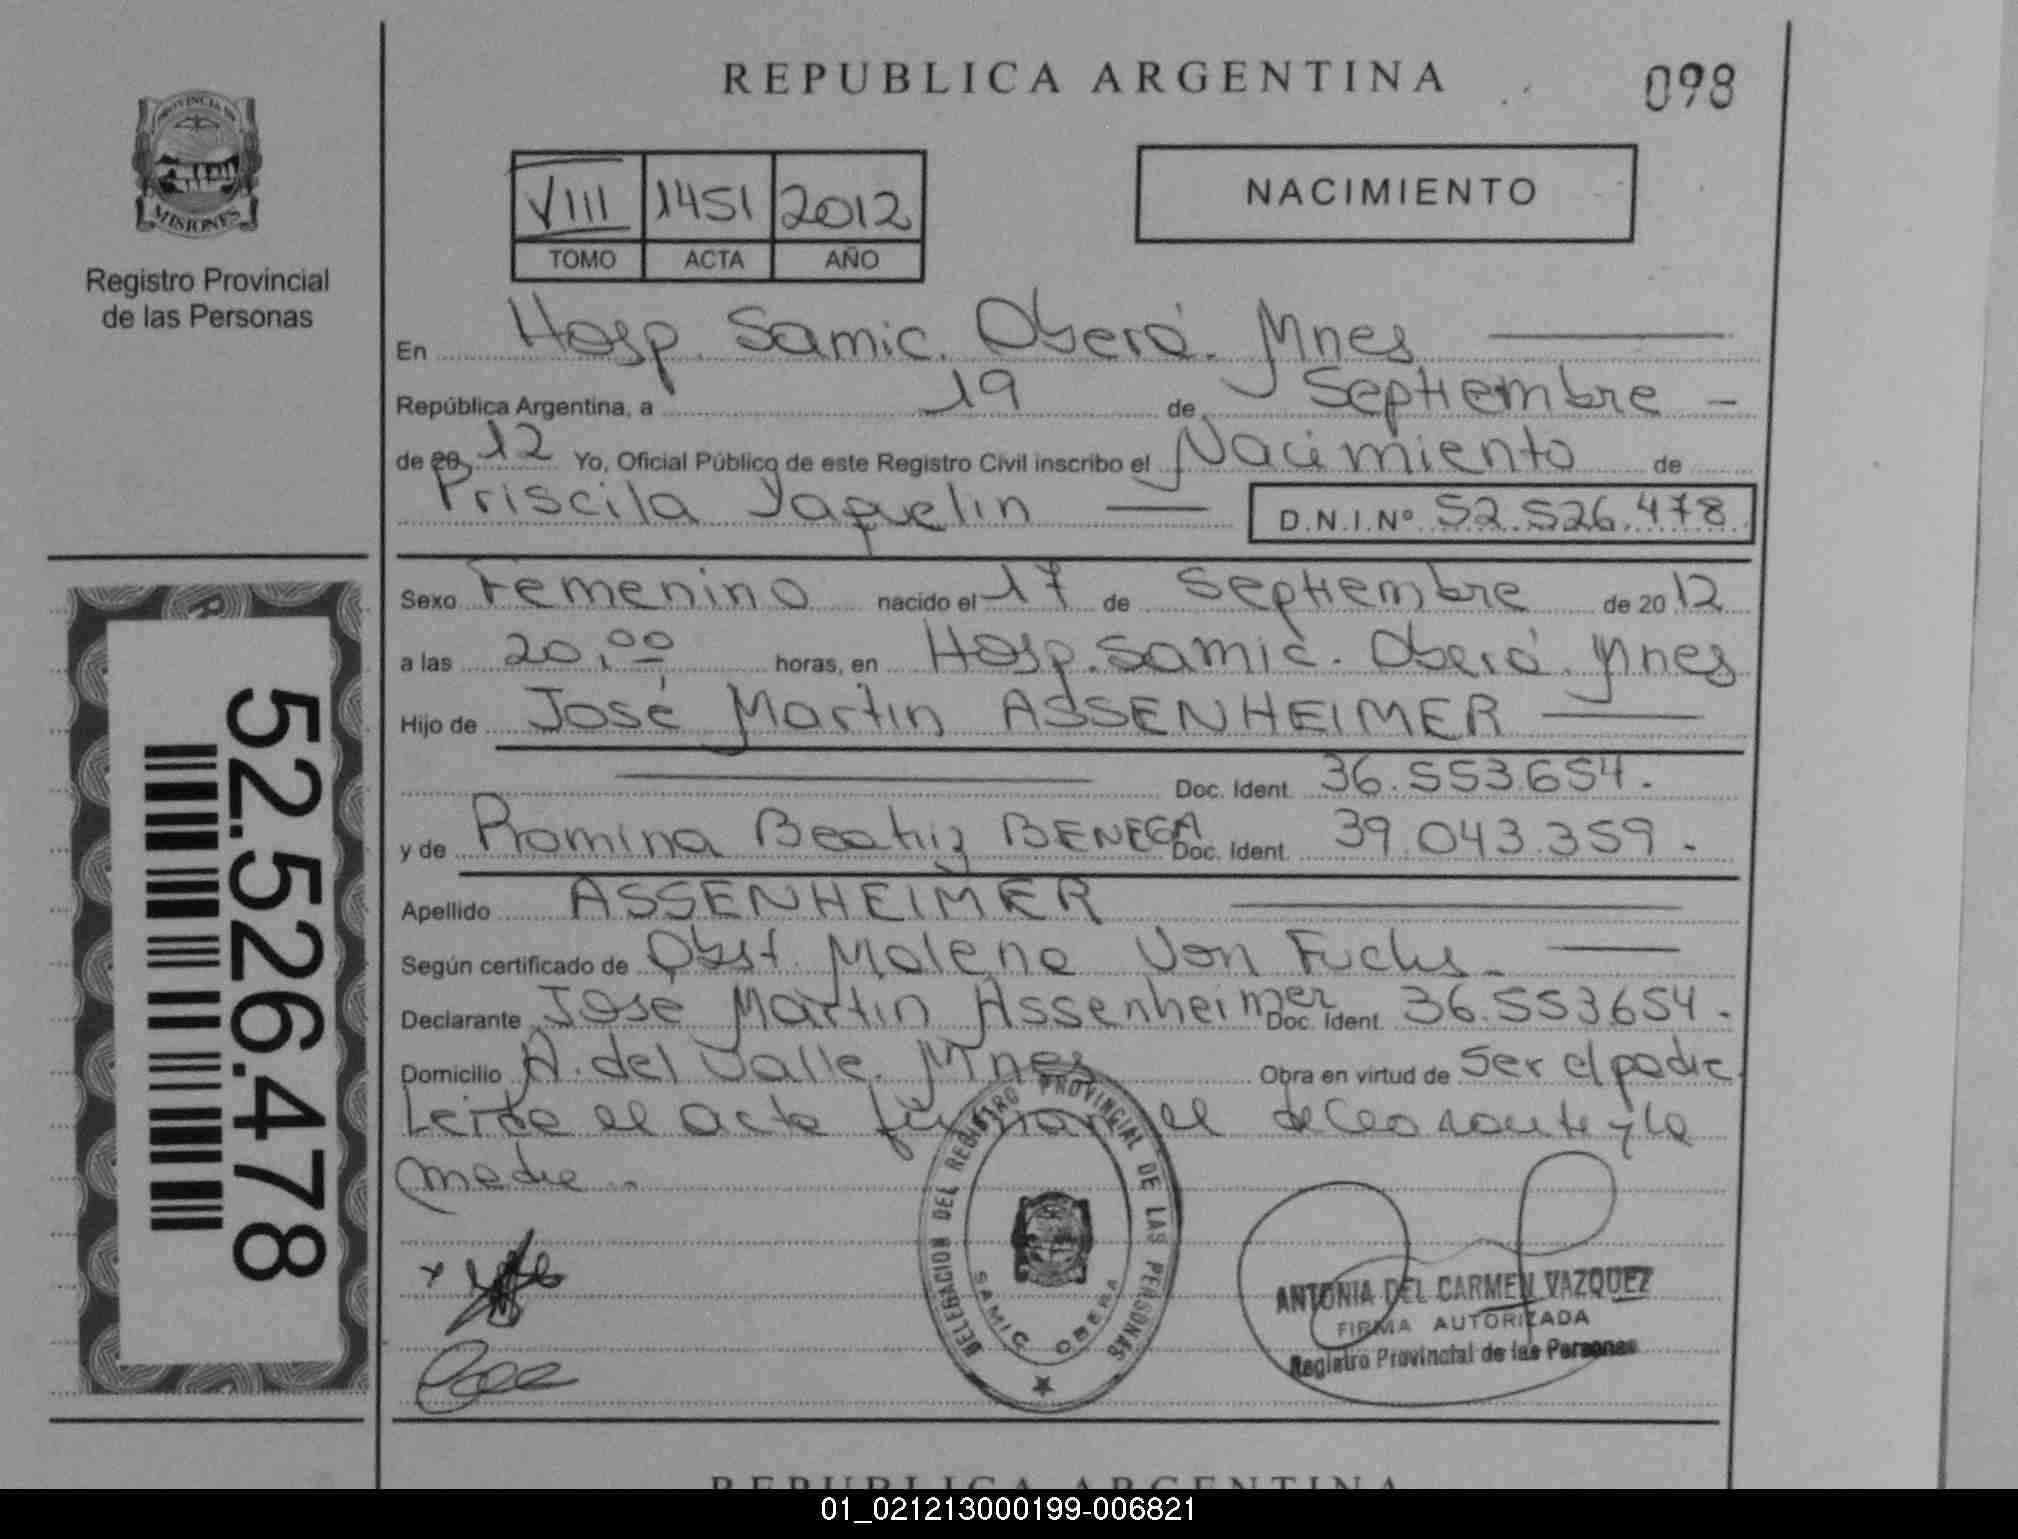 REPUBLICA ARGENTINA
098
PROVINCIA DE
MISIONES
Registro Provincial
de las Personas
VIII 1451 2012
TOMO ACTA AÑO
NACIMIENTO
En Hosp. Samic. Oberá. Mnes
República Argentina, a 19 de Septiembre
de 20 12 Yo, Oficial Público de este Registro Civil inscribo el Nacimiento de
Priscila Yaquelin D.N.I.Nº 52.526.478
Sexo Femenino nacido el 17 de Septiembre de 20 12
a las 20,00 horas, en Hosp. Samic. Oberá. Mnes
Hijo de José Martin ASSENHEIMER
Doc. Ident. 36.553.654.
y de Romina Beatriz BENEGA Doc. Ident. 39.043.359.
Apellido ASSENHEIMER
Según certificado de Obst. Malena Von Fuchs
Declarante José Martin Assenheimer Doc. Ident. 36.553654.
Domicilio A. del Valle. Mnes Obra en virtud de Ser el padre
Leida el acta firman el declarante y la
madre.
52.526.478
DELEGACION DEL REGISTRO PROVINCIAL DE LAS PERSONAS
SAMIC OBERA
ANTONIA DEL CARMEN VAZQUEZ
FIRMA AUTORIZADA
Registro Provincial de las Personas
REPUBLICA ARGENTINA
01_021213000199-006821